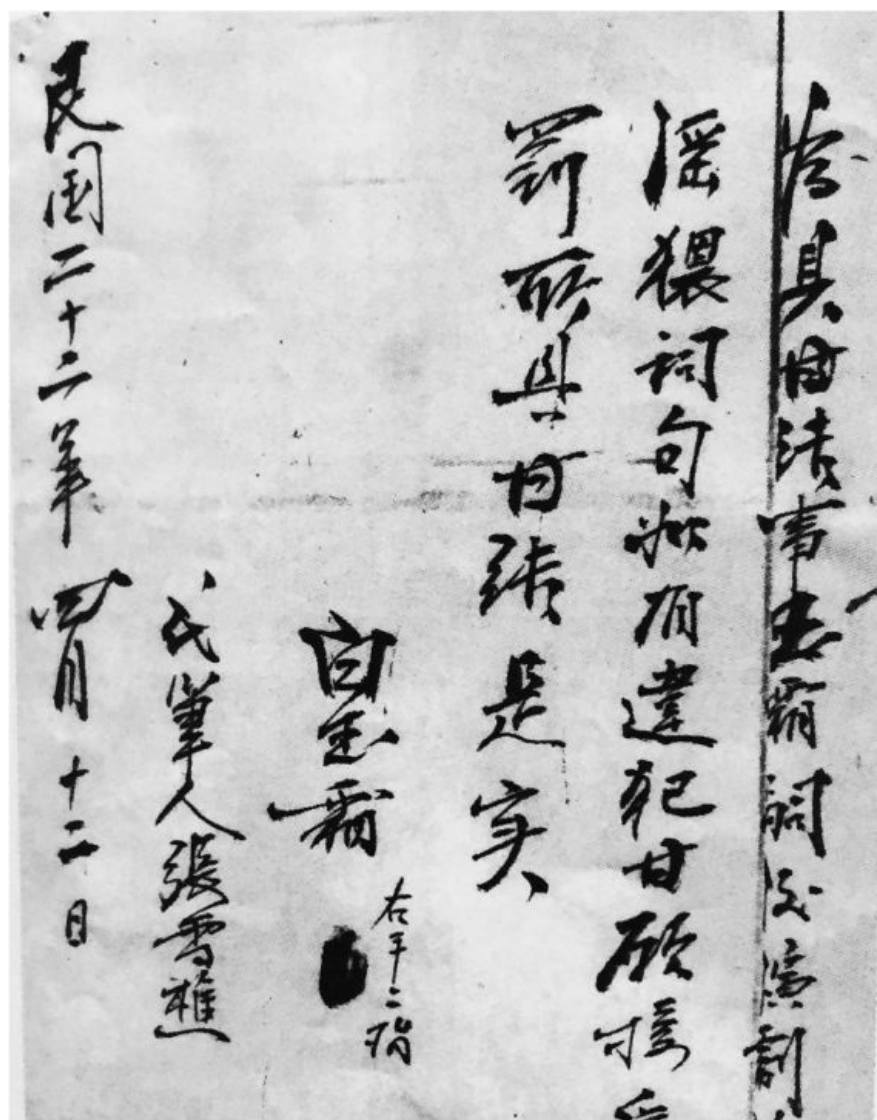 为具甘结事玉霜嗣后演剧
淫猥词句如有违犯甘愿接受
罚所具甘结是实
白玉霜
右手二指
代笔人張雪樵
民国二十二年四月十二日